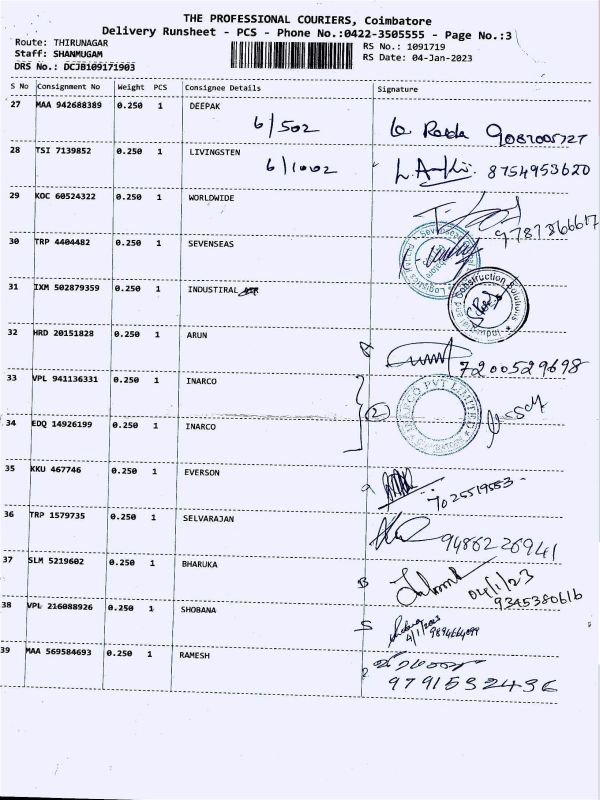 THE PROFESSIONAL COURIERS, Coimbatore
Delivery Runsheet - PCS - Phone No.:0422-3505555 - Page No.:3
Route: THIRUNAGAR
Staff: SHANMUGAM
DRS No.: DCJB109171903
RS No.: 1091719
RS Date: 04-Jan-2023
S No Consignment No Weight PCS Consignee Details Signature
27 MAA 942688389 0.250 1 DEEPAK
6/502
9087005727
28 TSI 7139852 0.250 1 LIVINGSTEN
6/1002
8754953620
29 KOC 60524322 0.250 1 WORLDWIDE
30 TRP 4404482 0.250 1 SEVENSEAS
31 IXM 502879359 0.250 1 INDUSTIRAL
Construction Solutions
32 HRD 20151828 0.250 1 ARUN
7200529698
33 VPL 941136331 0.250 1 INARCO
2
INARCO PVT LIMITED
COIMBATORE
34 EDQ 14926199 0.250 1 INARCO
35 KKU 467746 0.250 1 EVERSON
7025519553
36 TRP 1579735 0.250 1 SELVARAJAN
9486226941
37 SLM 5219602 0.250 1 BHARUKA
B
04/1/23
9345380616
38 VPL 216088926 0.250 1 SHOBANA
S
4/1/2023
39 MAA 569584693 0.250 1 RAMESH
9791532436